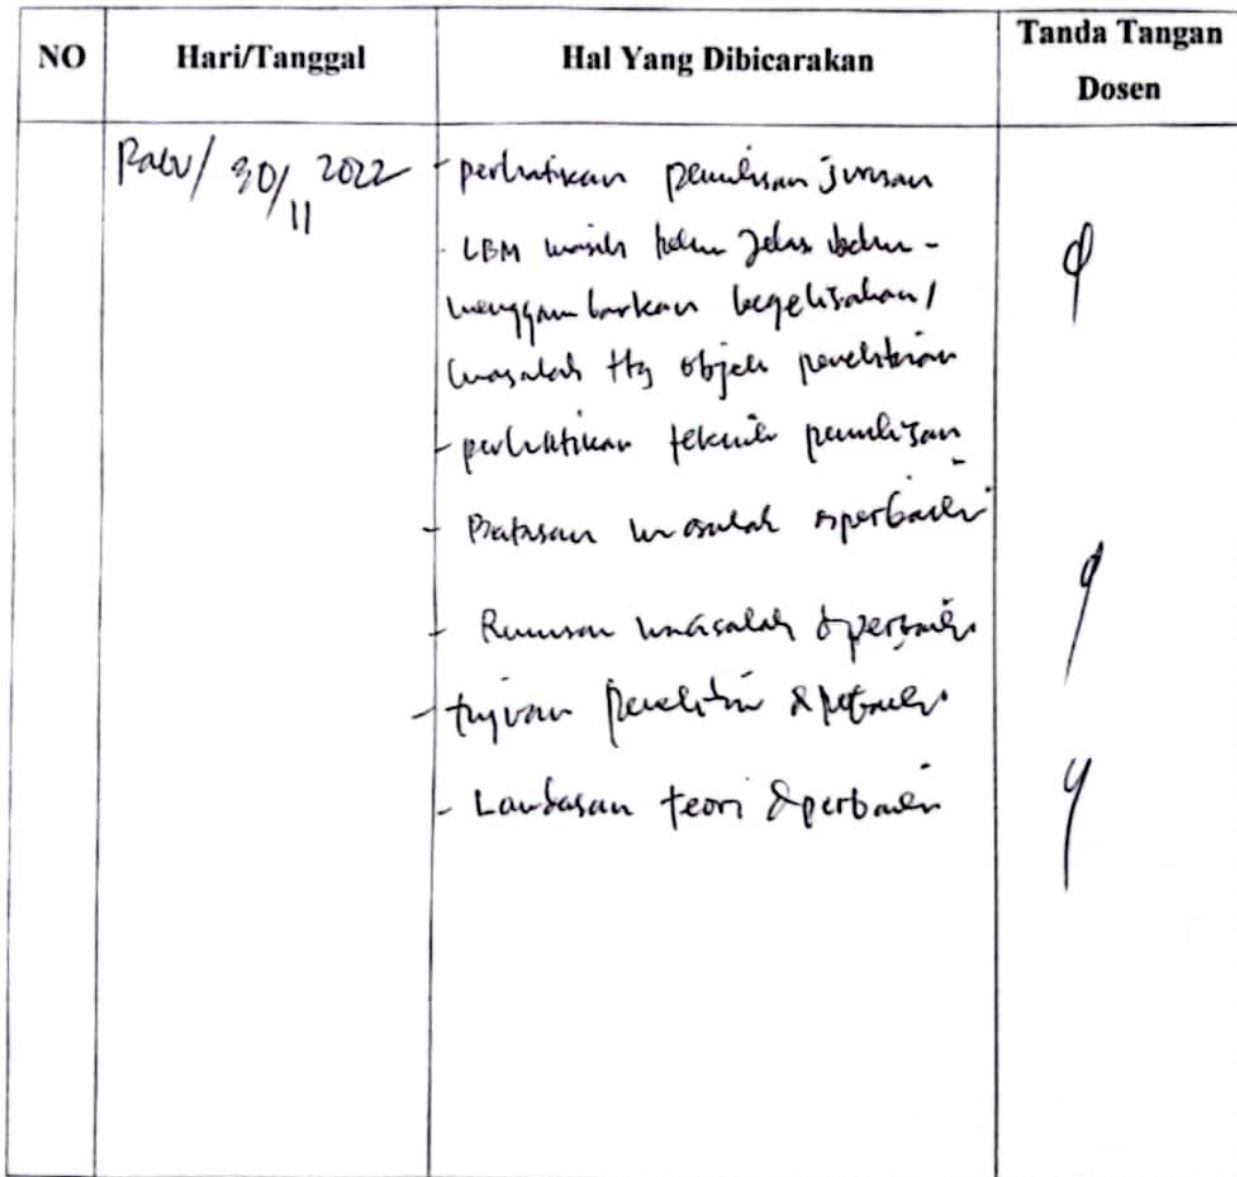 NO Hari/Tanggal Hal Yang Dibicarakan Tanda Tangan
Dosen
Rabu/ 30/11 2022
- perhatikan penulisan jurusan
- LBM masih belum jelas belum -
menggambarkan kegelisahan/
masalah ttg objek penelitian
- perhatikan teknik penulisan
- Batasan masalah diperbaiki
- Rumusan masalah diperbaiki
- tujuan penelitian diperbaiki
- Landasan teori diperbaiki